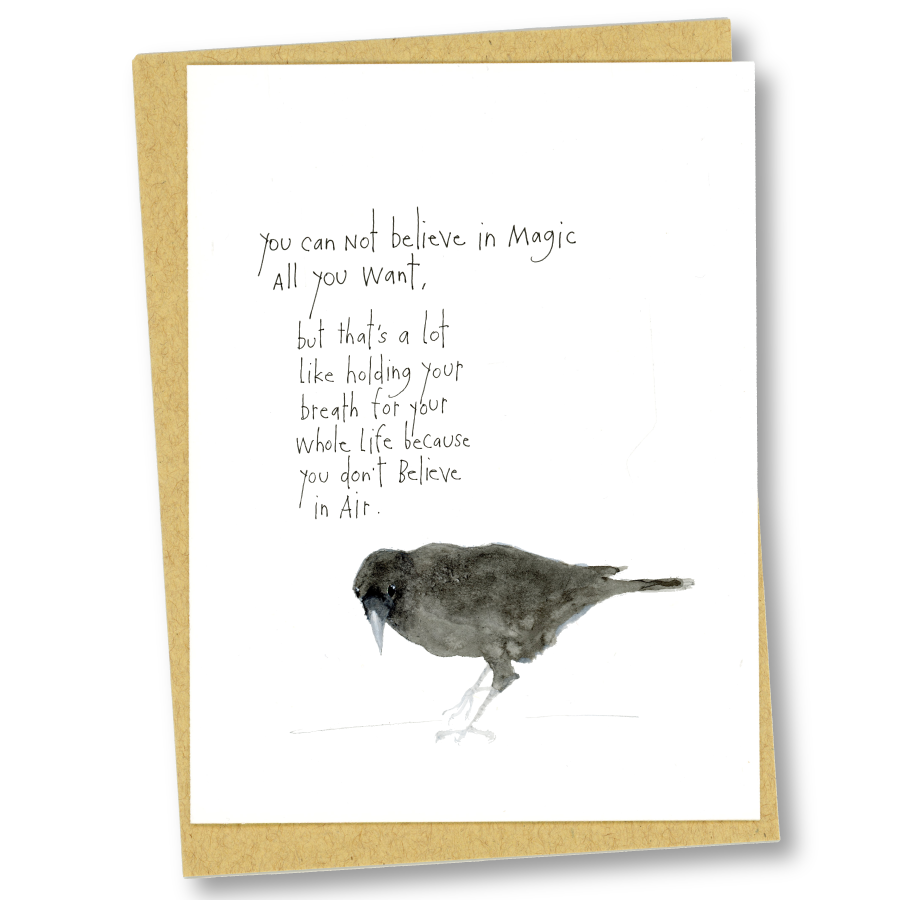 you can Not believe in Magic
All you Want,
but that's a lot
like holding your
breath for your
whole life because
you don't Believe
in Air.